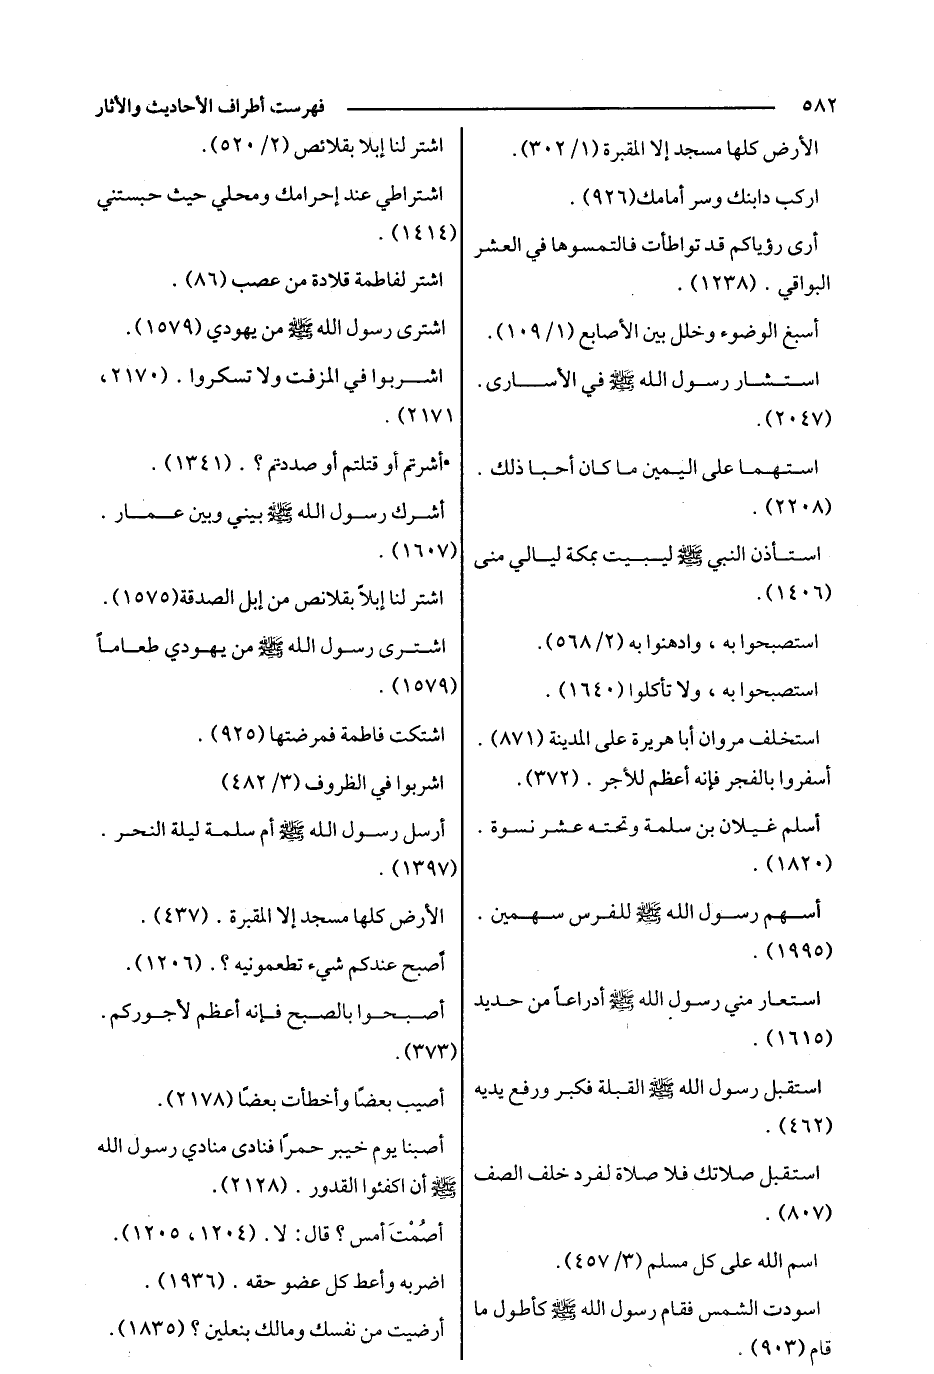 ٥٨٢ فهرست أطراف الأحاديث والأثار
الأرض كلها مسجد إلا المقبرة (١/ ٣٠٢).
اركب دابتك وسر أمامك(٩٢٦) .
أرى رؤياكم قد تواطأت فالتمسوها في العشر
البواقي . (١٢٣٨) .
أسبغ الوضوء وخلل بين الأصابع (١/ ١٠٩).
استشار رسول الله ﷺ في الأسارى .
(٢٠٤٧).
استهما على اليمين ما كان أحبا ذلك .
(٢٢٠٨) .
استأذن النبي ﷺ ليبيت بمكة ليالي منى
(١٤٠٦).
استصبحوا به ، وادهنوا به (٢/ ٥٦٨).
استصبحوا به ، ولا تأكلوا (١٦٤٠) .
استخلف مروان أبا هريرة على المدينة (٨٧١) .
أسفروا بالفجر فإنه أعظم للأجر . (٣٧٢).
أسلم غيلان بن سلمة وتحته عشر نسوة .
(١٨٢٠) .
أسهم رسول الله ﷺ للفرس سهمين .
(١٩٩٥) .
استعار مني رسول الله ﷺ أدراعاً من حديد
(١٦١٥) .
استقبل رسول الله ﷺ القبلة فكبر ورفع يديه
(٤٦٢) .
استقبل صلاتك فلا صلاة لفرد خلف الصف
(٨٠٧) .
اسم الله على كل مسلم (٣/ ٤٥٧).
اسودت الشمس فقام رسول الله ﷺ كأطول ما
قام (٩٠٣) .
اشتر لنا إبلا بقلائص (٢/ ٥٢٠).
اشتراطي عند إحرامك ومحلي حيث حبستني
(١٤١٤) .
اشتر لفاطمة قلادة من عصب (٨٦) .
اشترى رسول الله ﷺ من يهودي (١٥٧٩).
اشربوا في المزفت ولا تسكروا . (٢١٧٠،
٢١٧١) .
أشرتم أو قتلتم أو صددتم ؟ . (١٣٤١) .
أشرك رسول الله ﷺ بيني وبين عمار .
(١٦٠٧) .
اشتر لنا إبلاً بقلائص من إبل الصدقة(١٥٧٥).
اشترى رسول الله ﷺ من يهودي طعاماً
(١٥٧٩) .
اشتكت فاطمة فمرضتها (٩٢٥) .
اشربوا في الظروف (٣/ ٤٨٢)
أرسل رسول الله ﷺ أم سلمة ليلة النحر .
(١٣٩٧) .
الأرض كلها مسجد إلا المقبرة . (٤٣٧) .
أصبح عندكم شيء تطعمونيه ؟ . (١٢٠٦).
أصبحوا بالصبح فإنه أعظم لأجوركم .
(٣٧٣).
أصيب بعضًا وأخطأت بعضًا (٢١٧٨).
أصبنا يوم خيبر حمرًا فنادى منادي رسول الله
ﷺ أن اكفئوا القدور . (٢١٢٨).
أصُمْتَ أمس ؟ قال : لا . (١٢٠٤، ١٢٠٥).
اضربه وأعط كل عضو حقه . (١٩٣٦) .
أرضيت من نفسك ومالك بنعلين ؟ (١٨٣٥).